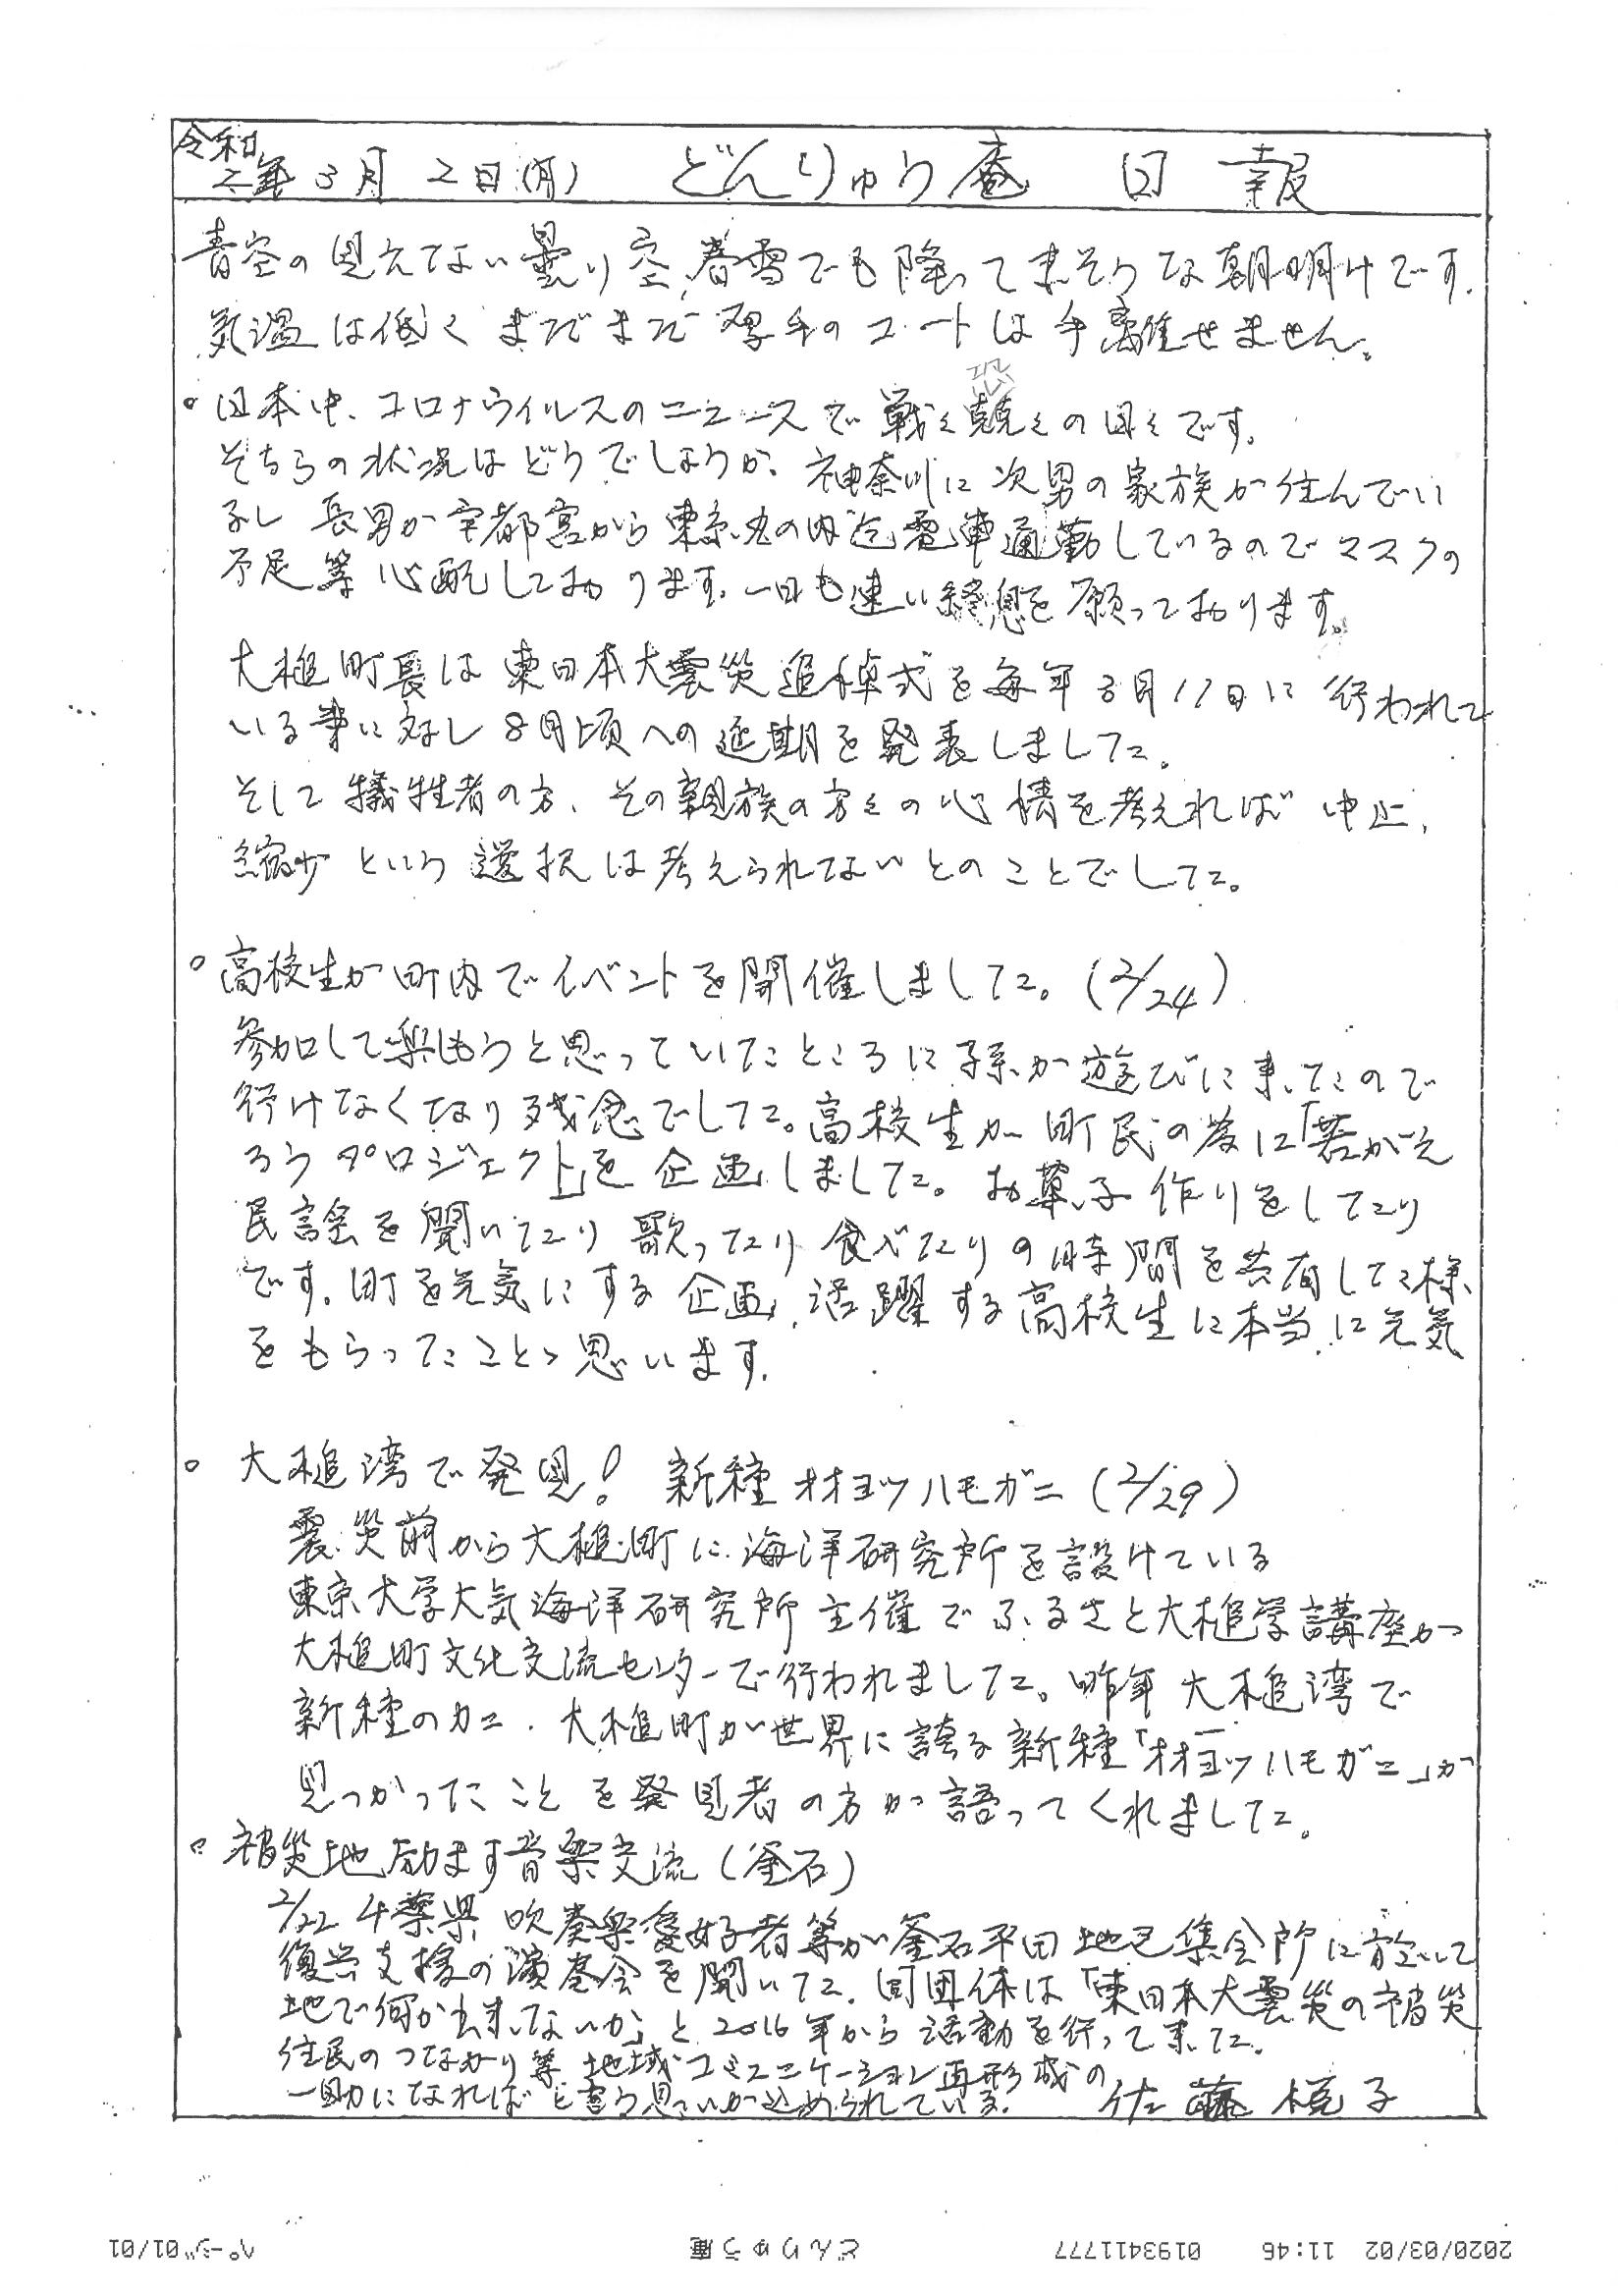 令和
2年3月2日(月) どんりゅう庵 日報
青空の見えない曇り空、春雪でも降って来そうな朝明けです。
気温は低くまだまだ厚手のコートは手離せません。
恐
○日本中、コロナウイルスのニュースで戦々兢々の日々です。
そちらの状況はどうでしょうか。神奈川に次男の家族が住んでい
るし長男が宇都宮から東京丸の内迄電車通勤しているのでマスクの
不足等心配しております。一日も速い終息を願っております。
大槌町長は東日本大震災追悼式を毎年3月11日に行われて
いる事に対し8月頃への延期を発表しました。
そして犠牲者の方、その親族の方々の心情を考えれば中止、
縮少という選択は考えられないとのことでした。
○高校生が町内でイベントを開催しました。(2/24)
参加して楽しもうと思っていたところに孫が遊びに来たので
行けなくなり残念でした。高校生が町民の為に「若がえ
ろうプロジェクト」を企画しました。お菓子作りをしたり
民謡を聞いたり歌ったり食べたりの時間を共有した様
です。町を元気にする企画、活躍する高校生に本当に元気
をもらったことゝ思います。
○大槌湾で発見!新種オオヨツハモガニ(2/29)
震災前から大槌町に海洋研究所を設けている
東京大学大気海洋研究所主催でふるさと大槌学講座が
大槌町文化交流センターで行われました。昨年大槌湾で
新種のカニ、大槌町が世界に誇る新種「オオヨツハモガニ」が
見つかったことを発見者の方が語ってくれました。
○被災地励ます音楽交流(釜石)
2/22 千葉県吹奏楽愛好者等が釜石平田地区集会所に於いて
復興支援の演奏会を開いた。同団体は「東日本大震災の被災
地で何か出来ないか」と2016年から活動を行って来た。
住民のつながり等地域コミュニケーション再形成の
一助になればと言う思いが込められている。 佐藤悦子
2020/03/02 11:46 0193411777 どんりゅう庵 ページ 01/01